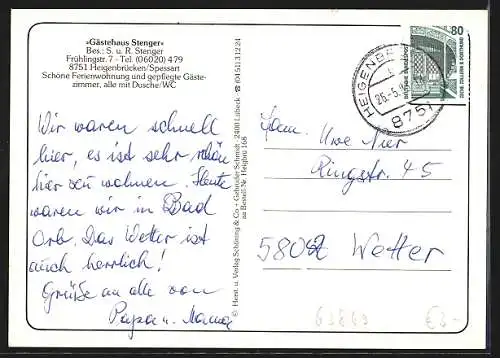 »Gästehaus Stenger«
Bes.: S. u. R. Stenger
Frühlingstr. 7 - Tel. (06020) 479
8751 Heigenbrücken/Spessart
Schöne Ferienwohnung und gepflegte Gäste-
zimmer, alle mit Dusche/WC
Wir waren schnell
hier, es ist sehr schön
hier zu wohnen. Heute
waren wir in Bad
Orb. Das Wetter ist
auch herrlich!
Grüße an alle von
Papa u. Mama
© Herst. u. Verlag Schöning & Co. + Gebrüder Schmidt, 2400 Lübeck
aus Bestell-Nr. Heigbrü 168
80
8751
Fam. Uwe
Ringstr. 45
5802 Wetter
€3-